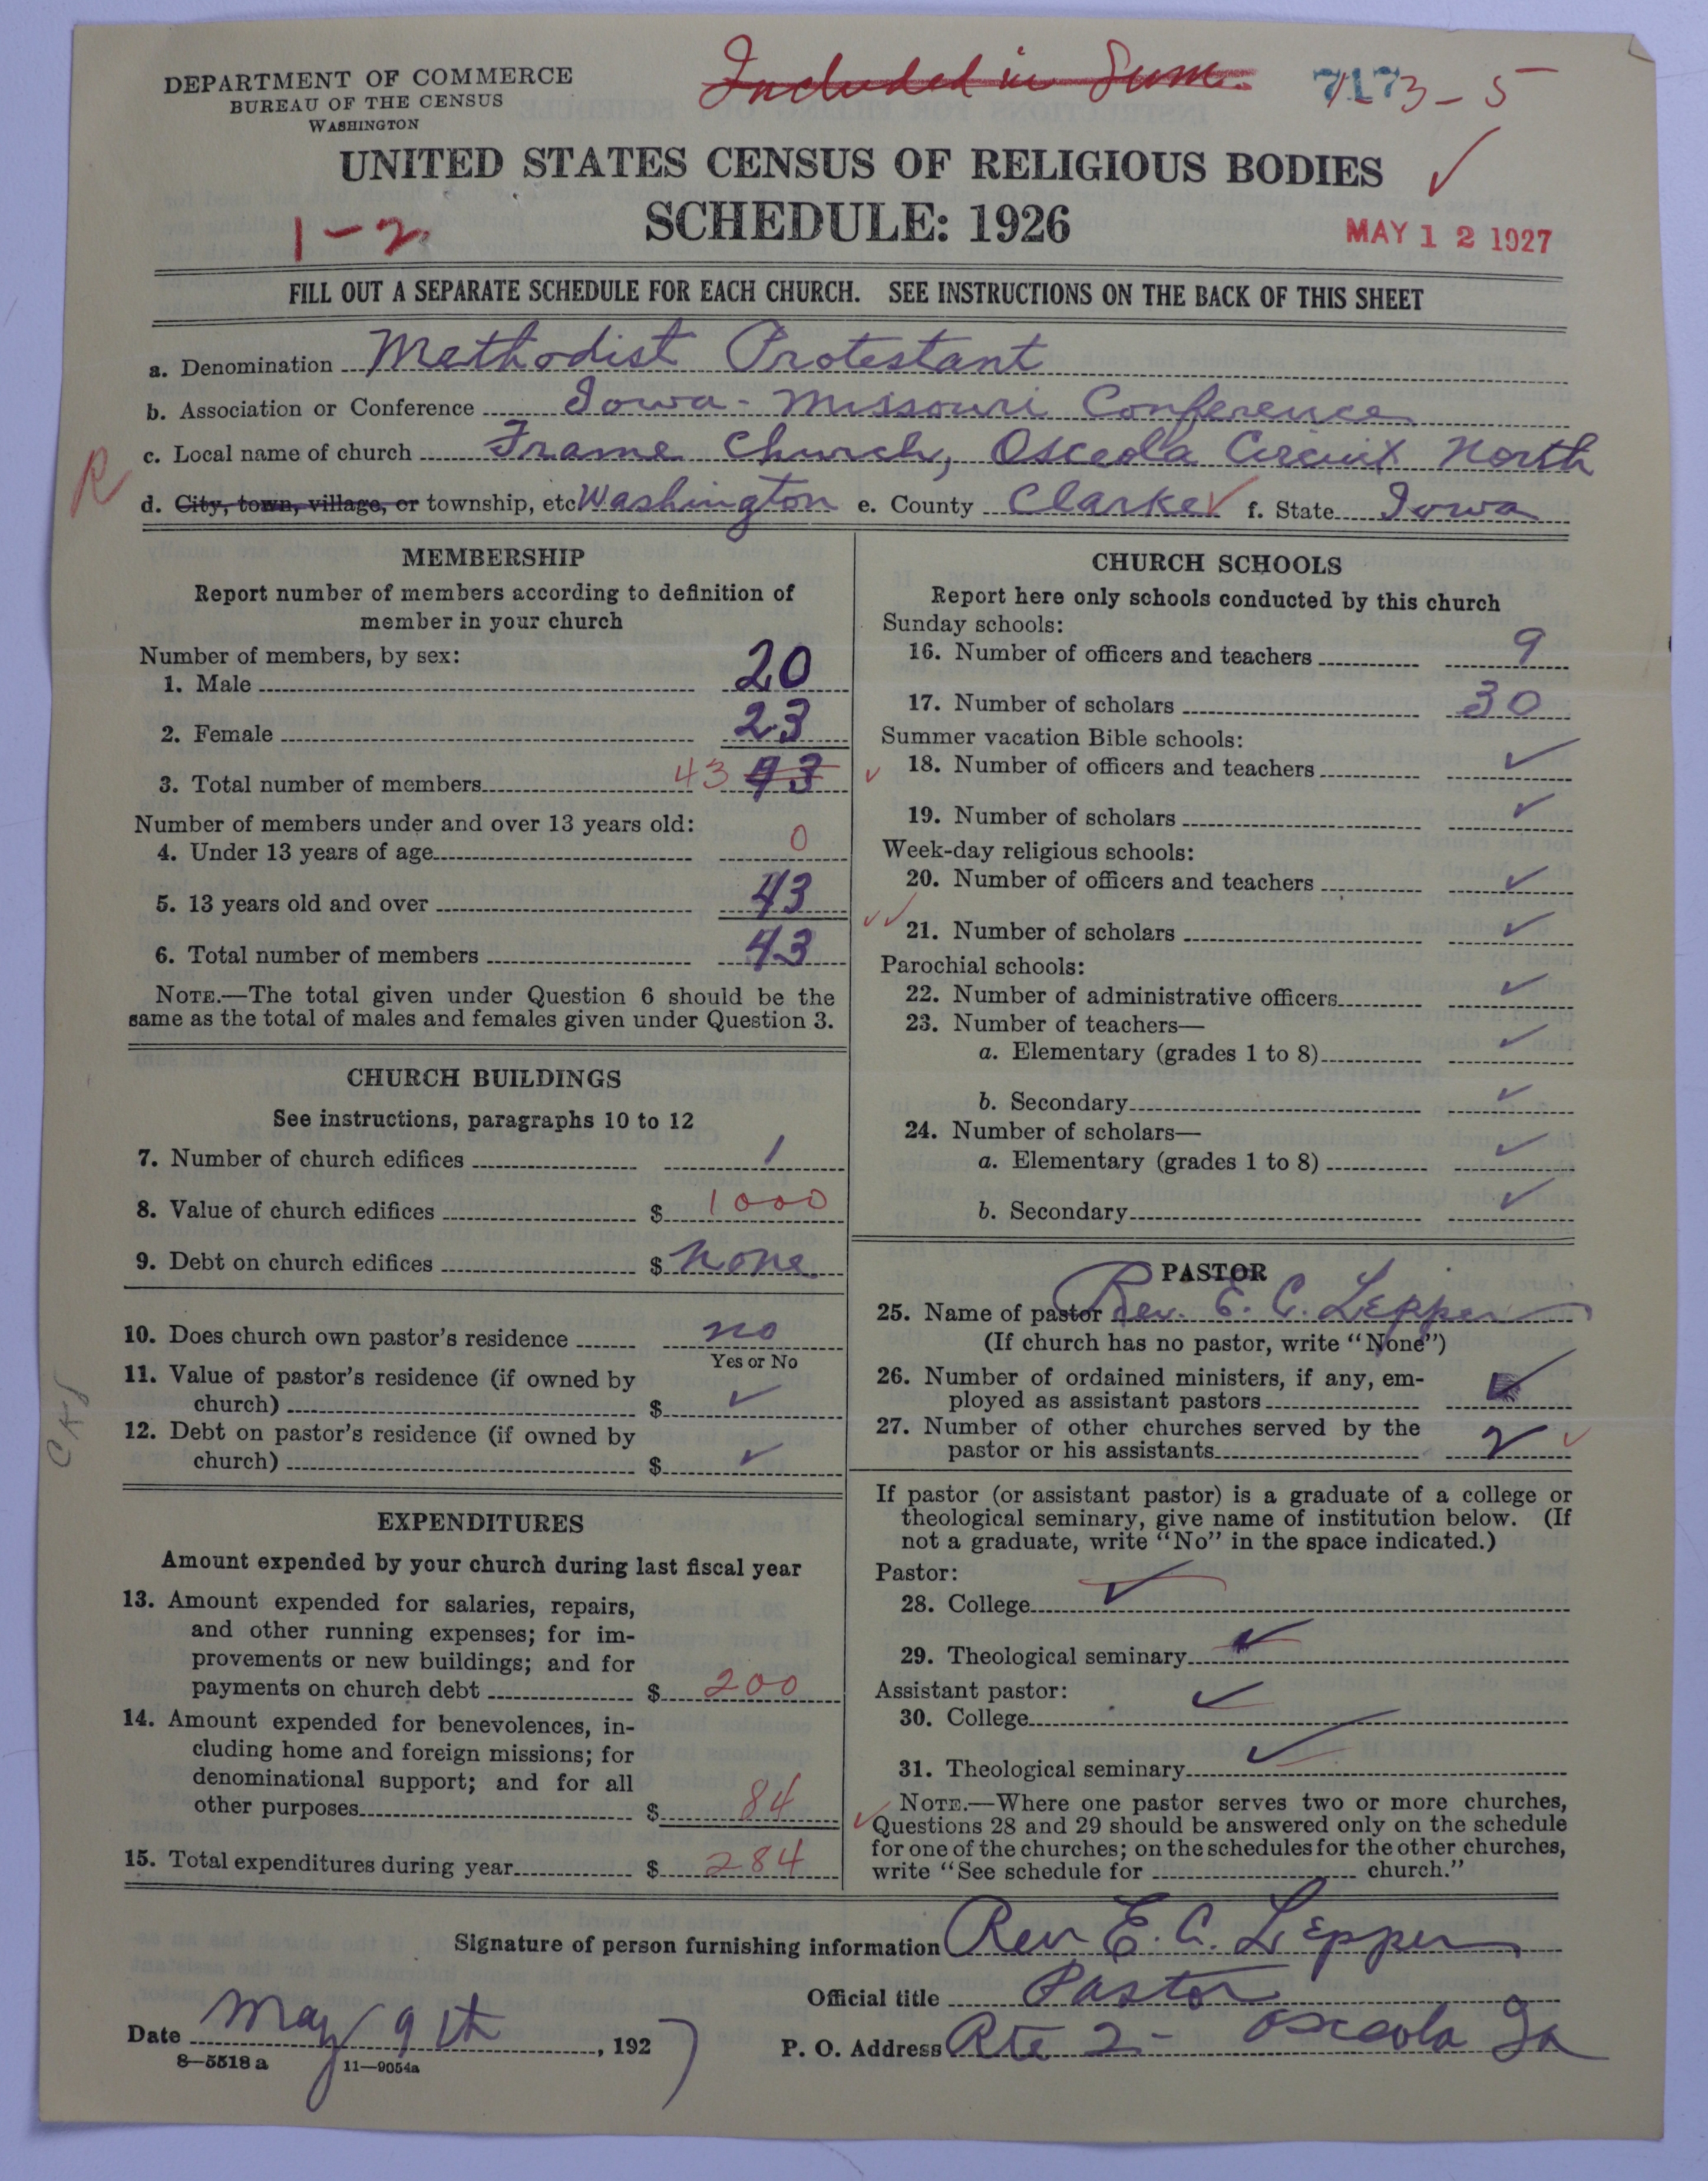 DEPARTMENT OF COMMERCE
BUREAU OF THE CENSUS
WASHINGTON
Included in Sum.
7173-5
UNITED STATES CENSUS OF RELIGIOUS BODIES
SCHEDULE: 1926
1-2
MAY 12 1927
FILL OUT A SEPARATE SCHEDULE FOR EACH CHURCH. SEE INSTRUCTIONS ON THE BACK OF THIS SHEET
a. Denomination Methodist Protestant
b. Association or Conference Iowa-Missouri Conference
c. Local name of church Frame Church, Osceola Circuit North
R
d. City, town, village, or township, etc Washington e. County Clarke f. State Iowa
MEMBERSHIP
Report number of members according to definition of
member in your church
Number of members, by sex:
1. Male 20
2. Female 23
3. Total number of members 43 43
Number of members under and over 13 years old:
4. Under 13 years of age 0
5. 13 years old and over 43
6. Total number of members 43
NOTE.—The total given under Question 6 should be the
same as the total of males and females given under Question 3.
CHURCH BUILDINGS
See instructions, paragraphs 10 to 12
7. Number of church edifices 1
8. Value of church edifices $ 1000
9. Debt on church edifices $ none
10. Does church own pastor's residence no
Yes or No
11. Value of pastor's residence (if owned by
church) $ ✓
12. Debt on pastor's residence (if owned by
church) $ ✓
EXPENDITURES
Amount expended by your church during last fiscal year
13. Amount expended for salaries, repairs,
and other running expenses; for im-
provements or new buildings; and for
payments on church debt $ 200
14. Amount expended for benevolences, in-
cluding home and foreign missions; for
denominational support; and for all
other purposes $ 84
15. Total expenditures during year $ 284
CHURCH SCHOOLS
Report here only schools conducted by this church
Sunday schools:
16. Number of officers and teachers 9
17. Number of scholars 30
Summer vacation Bible schools:
18. Number of officers and teachers ✓
19. Number of scholars ✓
Week-day religious schools:
20. Number of officers and teachers ✓
21. Number of scholars ✓
Parochial schools:
22. Number of administrative officers ✓
23. Number of teachers—
a. Elementary (grades 1 to 8) ✓
b. Secondary ✓
24. Number of scholars—
a. Elementary (grades 1 to 8) ✓
b. Secondary ✓
PASTOR
25. Name of pastor Rev. E. C. Lepper
(If church has no pastor, write "None")
26. Number of ordained ministers, if any, em-
ployed as assistant pastors ✓
27. Number of other churches served by the
pastor or his assistants 2
If pastor (or assistant pastor) is a graduate of a college or
theological seminary, give name of institution below. (If
not a graduate, write "No" in the space indicated.)
Pastor:
28. College ✓
29. Theological seminary ✓
Assistant pastor:
30. College ✓
31. Theological seminary ✓
NOTE.—Where one pastor serves two or more churches,
Questions 28 and 29 should be answered only on the schedule
for one of the churches; on the schedules for the other churches,
write "See schedule for church."
Signature of person furnishing information Rev E. C. Lepper
Official title Pastor
Date May 9th, 1927
P. O. Address Rte 2- Osceola Ia
8—5518 a 11—9054a